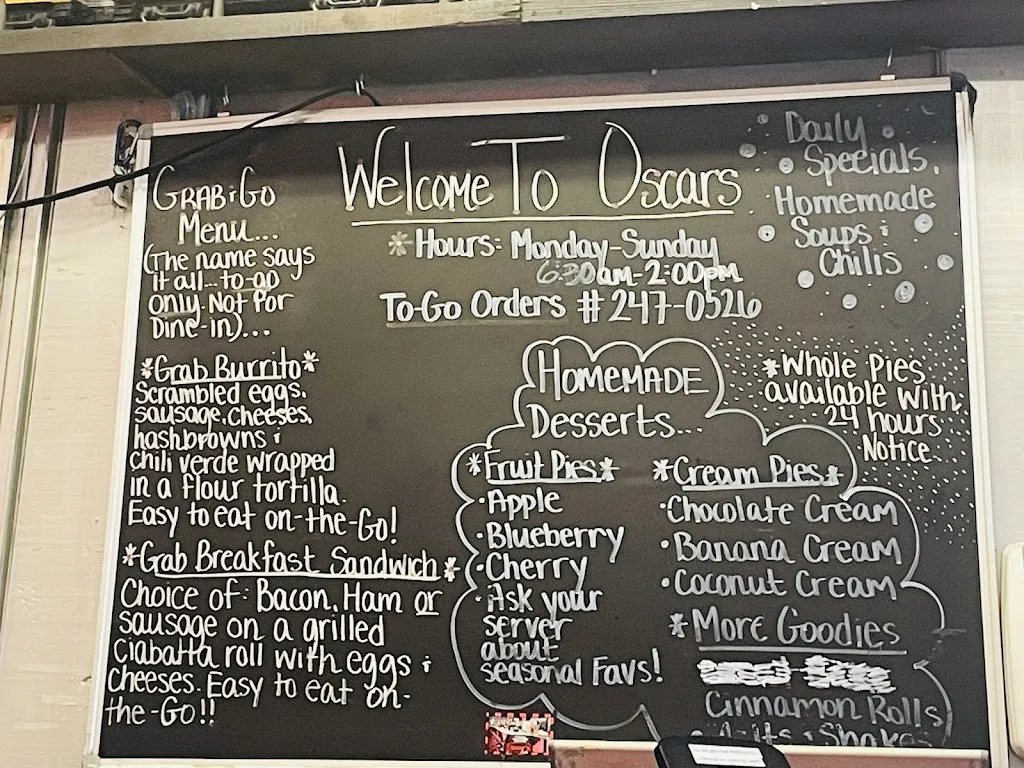 Welcome To Oscars
*Hours: Monday-Sunday
6:30am-2:00pm
To-Go Orders #247-0526
Grab & Go
Menu...
(The name says
it all...to-go
only. Not for
Dine-in)...
*Grab Burrito*
Scrambled eggs,
sausage, cheeses,
hashbrowns &
chili verde wrapped
in a flour tortilla.
Easy to eat on-the-Go!
*Grab Breakfast Sandwich*
Choice of: Bacon, Ham or
sausage on a grilled
Ciabatta roll with eggs &
cheeses. Easy to eat on-
the-Go!!
Daily
Specials,
Homemade
Soups &
Chilis
Homemade
Desserts...
*Fruit Pies*
·Apple
·Blueberry
·Cherry
·Ask your
server
about
seasonal Favs!
*Cream Pies*
·Chocolate Cream
·Banana Cream
·Coconut Cream
*More Goodies
Cinnamon Rolls
·Malts & Shakes
*Whole Pies
available with
24 hours
Notice